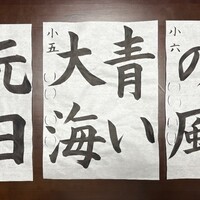 の風
小六
青い
大海
小五
元日